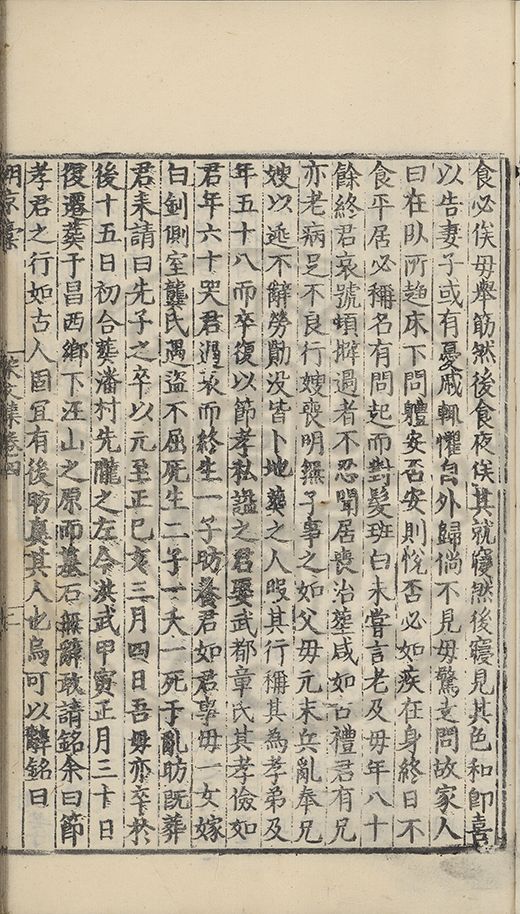 食必俟毋舉筯然後食夜俟其就寢然後寢見其色和即喜
以告妻子或有憂戚輒懼自外歸倘不見毋驚走問故家人
曰在臥所趨床下問體安否安則恱否必如疾在身終日不
食平居必稱名有問起而對髮班白未嘗言老及毋年八十
餘終君哀號頓擗過者不忍聞居喪治塟咸如古禮君有兄
亦老病足不良行嫂喪明無子事之如父毋元末兵亂奉兄
嫂以逃不辭勞勩没皆卜地塟之人叚其行稱其為孝弟及
年五十八而卒復以節孝私謚之君娶武都章氏其孝儉如
君年六十哭君過哀而終生一子昉養君如君事毋一女嫁
白釗側室龔氏遇盗不屈死生二子一夭一死于亂昉既葬
君来請曰先子之卒以元至正巳亥三月四日吾毋亦卒於
後十五日初合塟潘村先隴之左今洪武甲寅正月三十日
復遷葵于昌西鄉下汪山之原而墓石無辭敢請銘余曰節
孝君之行如古人固宜有後昉真其人也烏可以辭銘曰
文集卷四